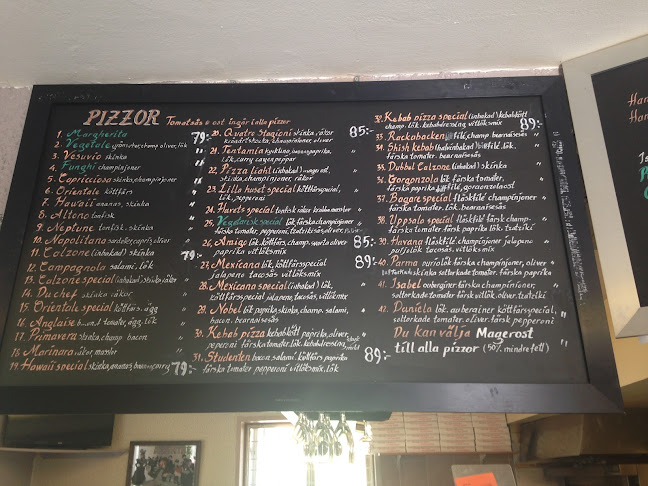 PIZZOR Tomatsås & ost ingår i alla pizzor
1. Margherita 79:-
2. Vegetale grönsaker, champ, oliver, lök
3. Vesuvio skinka
4. Funghi champinjoner
5. Capricciosa skinka, champinjoner
6. Orientale köttfärs
7. Hawaii ananas, skinka
8. Altono tonfisk
9. Neptune tonfisk, skinka
10. Napolitana sardeller, capris, oliver
11. Calzone (inbakad) skinka
12. Campagnola salami, lök
13. Calzone special (inbakad) skinka, räkor
14. Du chef skinka räkor
15. Orientale special köttfärs, ägg
16. Anglaise bacon, tomater, ägg, lök
17. Primavera skinka, champ bacon
18. Marinara räkor, musslor
19. Hawaii special skinka, ananas, banan, curry 79:-
20. Quatro Stagioni skinka, räkor 85:-
kronärtskocka, champinjoner, oliver
21. Tentamia kyckling, paprika
lök, curry cayenpeppar
22. Pizza ciaht (inbakad)
skinka, champinjoner, räkor
23. Lilla huset special köttfärspecial,
lök, pepperoni
24. Havets special tonfisk räkor krabba musslor
25. Vegetarisk special färska champinjoner
färska tomater, pepperoni, tzatziki sås, oliver
26. Amigo lök, köttfärs, champ. svarta oliver 85:-
paprika vitlöksmix
27. Mexicana lök, köttfärspecial 89:-
jalapeno tacosås, vitlöksmix
28. Mexicana special (inbakad) lök,
köttfärspecial jalapeno, tacosås, vitlöksmix
29. Nobel lök paprika, skinka, champ, salami,
bacon, bearnaisesås
30. Kebab pizza kebabkött paprika, oliver,
peperoni färska tomater, lök, kebabdressing
31. Studenten bacon, salami, köttfärs paprika 89:-
färska tomater pepperoni vitlöksmix, lök
32. Kebab pizza special (inbakad) kebabkött 89:-
champ. lök. kebabdressing vitlöksmix
33. Rackabacken filé, champ, bearnaisesås
34. Shish kebab (halvinbakad) filé, lök,
färska tomater, bearnaisesås
35. Dubbel Calzone (inbakad) skinka
36. Gorgonzola lök, färska tomater,
färska paprika filé, gorgonzolaost
37. Bagare special fläskfilé färska champinjoner
färska tomater, lök, bearnaisesås
38. Uppsala special fläskfilé färsk champ-
färska tomater färsk paprika lök, tzatziki
39. Havana fläskfilé, champinjoner jalapeno
purjolök tacosås, vitlöksmix
40. Parma purjolök färska champinjoner, oliver
skinka soltorkade tomater, färsk paprika
41. Isabel auberginer, färska champinjoner,
soltorkade tomater färsk vitlök, oliver, tzatziki
42. Danielo lök, auberginer köttfärspecial,
soltorkade tomater, oliver, färsk pepperoni
Du kan välja Magerost
till alla pizzor (50% mindre fett)